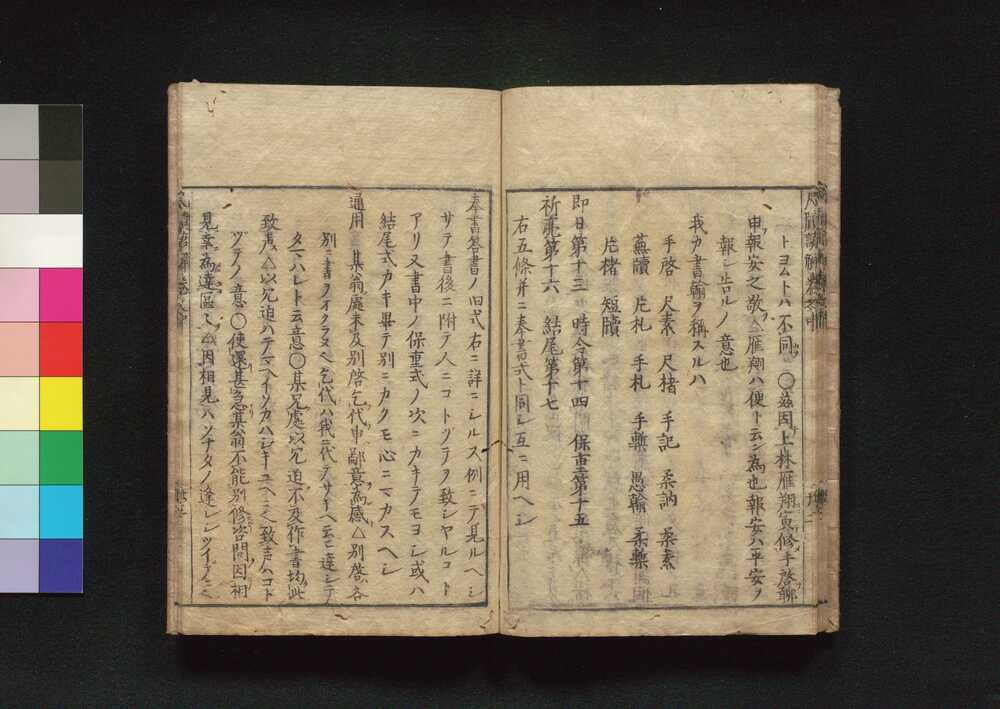 トヨムトハ不同 ○茲因上林雁翔寅修手啓聊
申報安之敬△雁翔ハ便ト云シ為也報安ハ平安ヲ
報シ告ルノ意也
我カ書翰ヲ稱スルハ
手啓 尺素 尺楮 手記 柔訥 柔素
蕪牘 片札 手札 手藥 愚翰 柔藥
片楮 短牘
即日第十三 時令第十四 保重第十五
祈亮第十六 結尾第十七
右五條并ニ奉書式ト同シ互ニ用ヘシ
奉書答書ノ旧式右ニ詳ニシルス例ニテ見ルヘシ
サテ書後ニ附テ人ニコトヅテヲ致シヤルコト
アリ又書中ノ保重式ノ次ニカキテモヨシ或ハ
結尾式カキ畢テ別ニカクモ心ニマカスヘシ
通用 某翁處未及別啓乞代申鄙意為感△別啓ハ各
別ニ書ヲイクラヌヘ乞代ハ我ニ代テサキヘ云ヒ達シテ
タマハレト云意○某兄處以冗迫不及作書均此
致声△以冗迫ハテマヘイソカハシキユヘニ致声ハコト
ヅテノ意○使還甚急某翁不能別修咨問因相
見幸為達區々△因相見ハソナタノ逢レシツイデニ